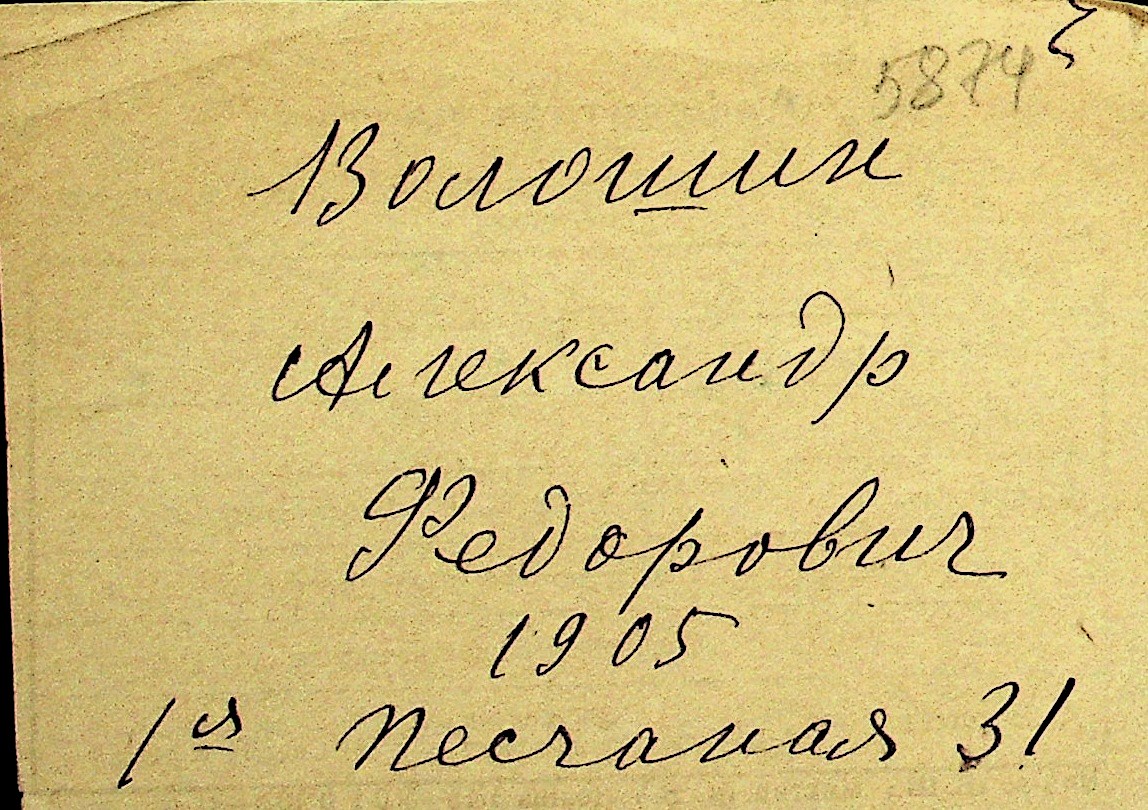 5874
Волошин
Александр
Федорович
1905
1я Песчаная 31